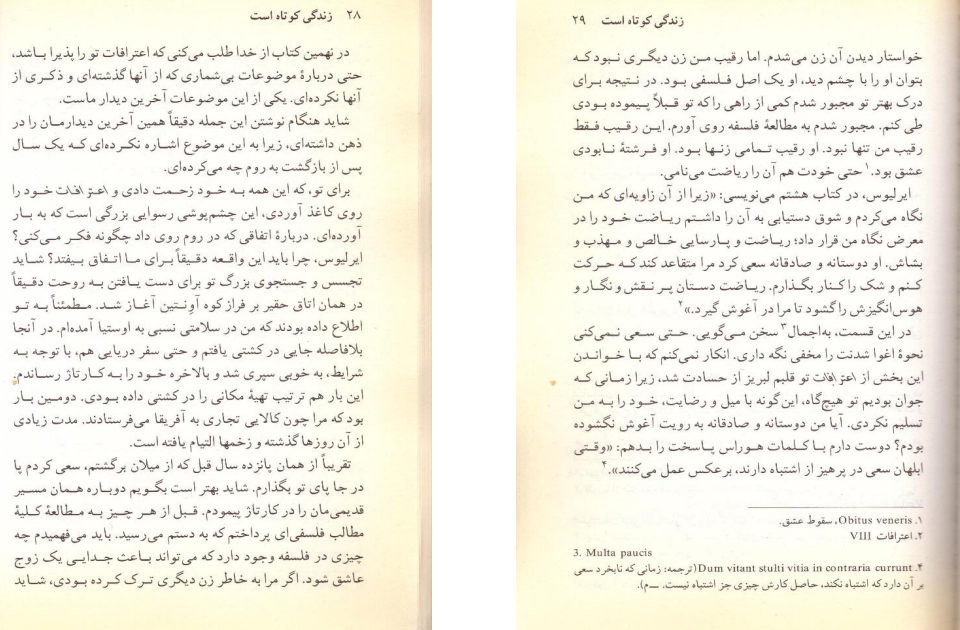 ۲۸ زندگی کوتاه است
در نهمین کتاب از خدا طلب می‌کنی که اعترافات تو را پذیرا باشد،
حتی دربارهٔ موضوعات بی‌شماری که از آنها گذشته‌ای و ذکری از
آنها نکرده‌ای. یکی از این موضوعات آخرین دیدار ماست.
شاید هنگام نوشتن این جمله دقیقاً همین آخرین دیدارمان را در
ذهن داشته‌ای، زیرا به این موضوع اشاره نکرده‌ای که یک سال
پس از بازگشت به روم چه می‌کرده‌ای.
برای تو، که این همه به خود زحمت دادی و اعترافات خود را
روی کاغذ آوردی، این چشم‌پوشی رسوایی بزرگی است که به بار
آورده‌ای. دربارهٔ اتفاقی که در روم روی داد چگونه فکر می‌کنی؟
ایرلیوس، چرا باید این واقعه دقیقاً برای ما اتفاق بیفتد؟ شاید
تجسس و جستجوی بزرگ تو برای دست یافتن به روحت دقیقاً
در همان اتاق حقیر بر فراز کوه آونتین آغاز شد. مطمئناً به تو
اطلاع داده بودند که من در سلامتی نسبی به اوستیا آمده‌ام. در آنجا
بلافاصله جایی در کشتی یافتم و حتی سفر دریایی هم، با توجه به
شرایط، به خوبی سپری شد و بالاخره خود را به کارتاژ رساندم.
این بار هم ترتیب تهیهٔ مکانی را در کشتی داده بودی. دومین بار
بود که مرا چون کالایی تجاری به آفریقا می‌فرستادند. مدت زیادی
از آن روزها گذشته و زخمها التیام یافته است.
تقریباً از همان پانزده سال قبل که از میلان برگشتم، سعی کردم پا
در جا پای تو بگذارم. شاید بهتر است بگویم دوباره همان مسیر
قدیمی‌مان را در کارتاژ پیمودم. قبل از هر چیز به مطالعهٔ کلیهٔ
مطالب فلسفی‌ای پرداختم که به دستم می‌رسید. باید می‌فهمیدم چه
چیزی در فلسفه وجود دارد که می‌تواند باعث جدایی یک زوج
عاشق شود. اگر مرا به خاطر زن دیگری ترک کرده بودی، شاید
زندگی کوتاه است ۲۹
خواستار دیدن آن زن می‌شدم. اما رقیب من زن دیگری نبود که
بتوان او را با چشم دید، او یک اصل فلسفی بود. در نتیجه برای
درک بهتر تو مجبور شدم کمی از راهی را که تو قبلاً پیموده بودی
طی کنم. مجبور شدم به مطالعهٔ فلسفه روی آورم. این رقیب فقط
رقیب من تنها نبود. او رقیب تمامی زنها بود. او فرشتهٔ نابودی
عشق بود.۱ حتی خودت هم آن را ریاضت می‌نامی.
ایرلیوس، در کتاب هشتم می‌نویسی: «زیرا از آن زاویه‌ای که من
نگاه می‌کردم و شوق دستیابی به آن را داشتم ریاضت خود را در
معرض نگاه من قرار داد؛ ریاضت و پارسایی خالص و مهذب و
بشاش. او دوستانه و صادقانه سعی کرد مرا متقاعد کند که حرکت
کنم و شک را کنار بگذارم. ریاضت دستان پر نقش و نگار و
هوس‌انگیزش را گشود تا مرا در آغوش گیرد.»۲
در این قسمت، به‌اجمال۳ سخن می‌گویی. حتی سعی نمی‌کنی
نحوهٔ اغوا شدنت را مخفی نگه داری. انکار نمی‌کنم که با خواندن
این بخش از اعترافات تو قلبم لبریز از حسادت شد، زیرا زمانی که
جوان بودیم تو هیچ‌گاه، این‌گونه با میل و رضایت، خود را به من
تسلیم نکردی. آیا من دوستانه و صادقانه به رویت آغوش نگشوده
بودم؟ دوست دارم با کلمات هوراس پاسخت را بدهم: «وقتی
ابلهان سعی در پرهیز از اشتباه دارند، برعکس عمل می‌کنند».۴
۱. Obitus veneris، سقوط عشق.
۲. اعترافات VIII
3. Multa paucis
۴. Dum vitant stulti vitia in contraria currunt (ترجمه: زمانی که نابخرد سعی
بر آن دارد که اشتباه نکند، حاصل کارش چیزی جز اشتباه نیست. ـــ م).